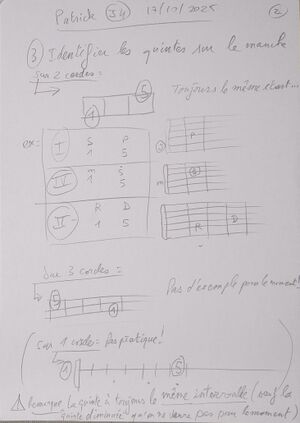 Patrick 17/10/2025 2
3 Identifier les quintes sur le manche
Sur 2 cordes =
5
1
Toujours le même écart...
ex:
I S P
1 5
P
IV m
1 5
m
II R D
1 5
R D
Sur 3 cordes =
5
1
Pas d'exemple pour le moment!
Sur 1 corde = Pas pratique!
1 5
Remarque la quinte a toujours le même intervalle (sauf la
quinte diminuée qu'on ne verra pas pour le moment)